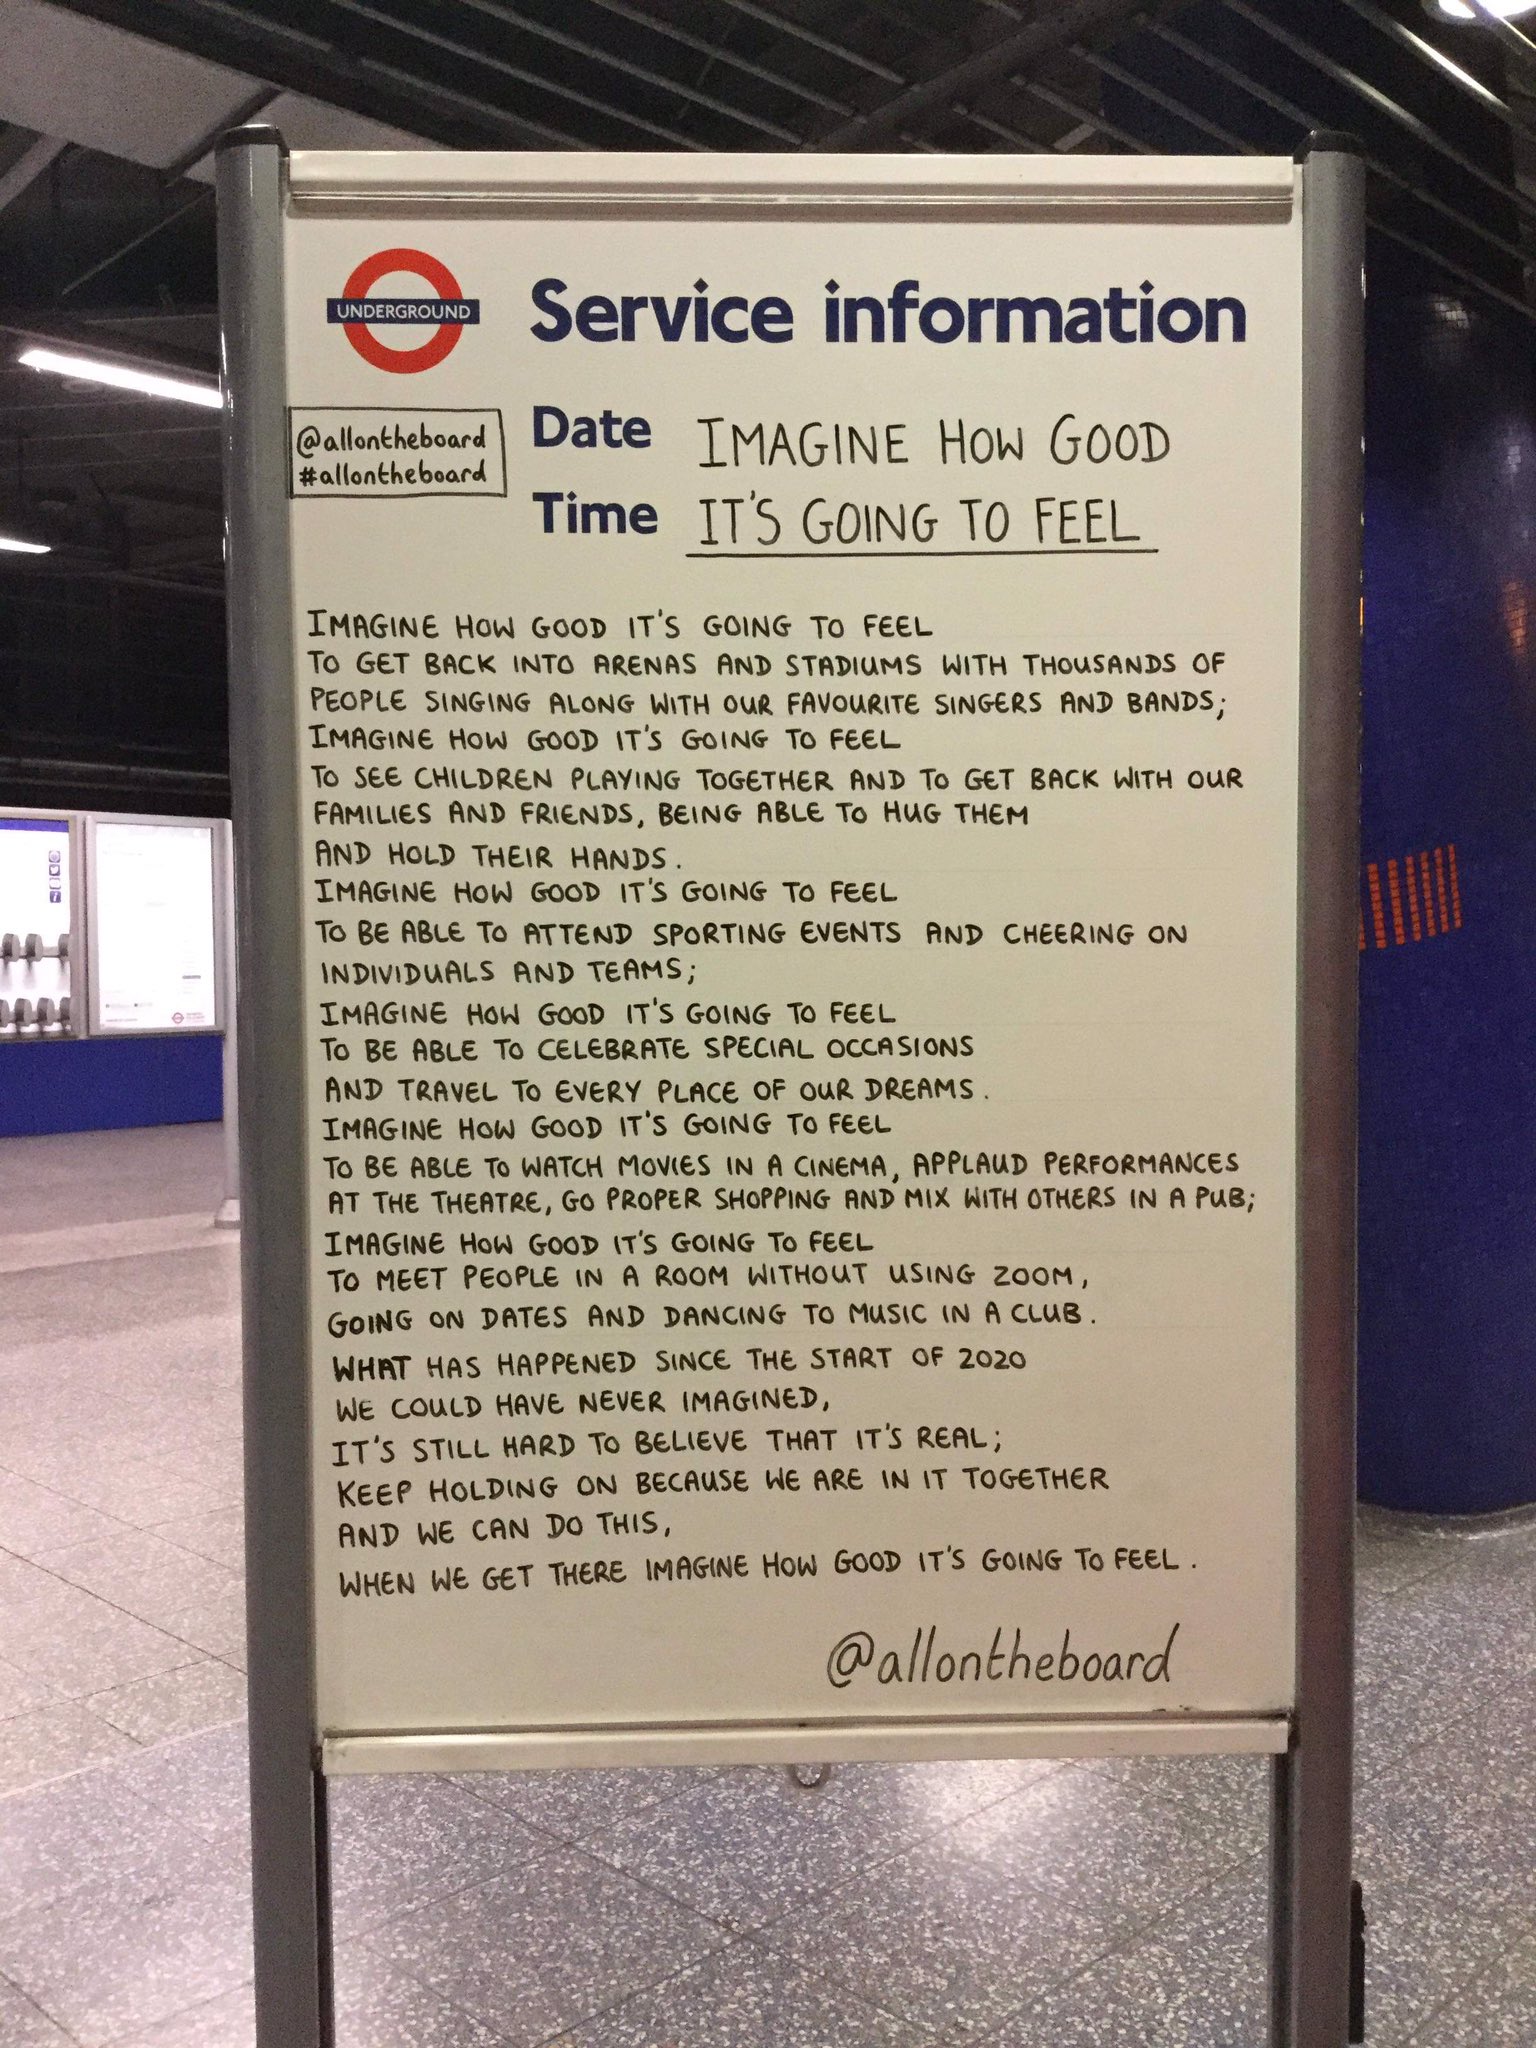 UNDERGROUND
Service information
@allontheboard
#allontheboard
Date IMAGINE HOW GOOD
Time IT'S GOING TO FEEL
IMAGINE HOW GOOD IT'S GOING TO FEEL
TO GET BACK INTO ARENAS AND STADIUMS WITH THOUSANDS OF
PEOPLE SINGING ALONG WITH OUR FAVOURITE SINGERS AND BANDS;
IMAGINE HOW GOOD IT'S GOING TO FEEL
TO SEE CHILDREN PLAYING TOGETHER AND TO GET BACK WITH OUR
FAMILIES AND FRIENDS, BEING ABLE TO HUG THEM
AND HOLD THEIR HANDS.
IMAGINE HOW GOOD IT'S GOING TO FEEL
TO BE ABLE TO ATTEND SPORTING EVENTS AND CHEERING ON
INDIVIDUALS AND TEAMS;
IMAGINE HOW GOOD IT'S GOING TO FEEL
TO BE ABLE TO CELEBRATE SPECIAL OCCASIONS
AND TRAVEL TO EVERY PLACE OF OUR DREAMS.
IMAGINE HOW GOOD IT'S GOING TO FEEL
TO BE ABLE TO WATCH MOVIES IN A CINEMA, APPLAUD PERFORMANCES
AT THE THEATRE, GO PROPER SHOPPING AND MIX WITH OTHERS IN A PUB;
IMAGINE HOW GOOD IT'S GOING TO FEEL
TO MEET PEOPLE IN A ROOM WITHOUT USING ZOOM,
GOING ON DATES AND DANCING TO MUSIC IN A CLUB.
WHAT HAS HAPPENED SINCE THE START OF 2020
WE COULD HAVE NEVER IMAGINED,
IT'S STILL HARD TO BELIEVE THAT IT'S REAL;
KEEP HOLDING ON BECAUSE WE ARE IN IT TOGETHER
AND WE CAN DO THIS,
WHEN WE GET THERE IMAGINE HOW GOOD IT'S GOING TO FEEL.
@allontheboard